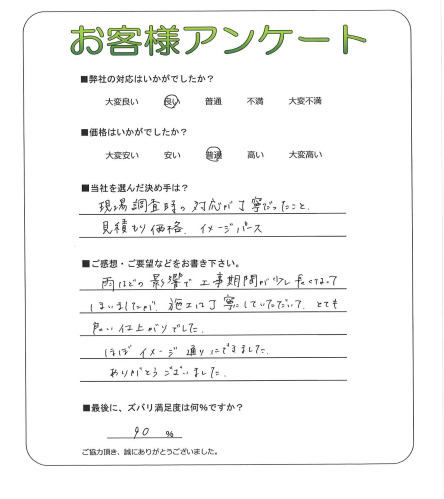 お客様アンケート
■弊社の対応はいかがでしたか？
大変良い 良い 普通 不満 大変不満
■価格はいかがでしたか？
大変安い 安い 普通 高い 大変高い
■当社を選んだ決め手は？
現場調査時の対応が丁寧だったこと、
見積もり価格、イメージパース
■ご感想・ご要望などをお書き下さい。
雨などの影響で工事期間が少し長くなって
しまいましたが、施工は丁寧にしていただいて、とても
良い仕上がりでした。
ほぼイメージ通りにできました。
ありがとうございました。
■最後に、ズバリ満足度は何%ですか？
90 %
ご協力頂き、誠にありがとうございました。